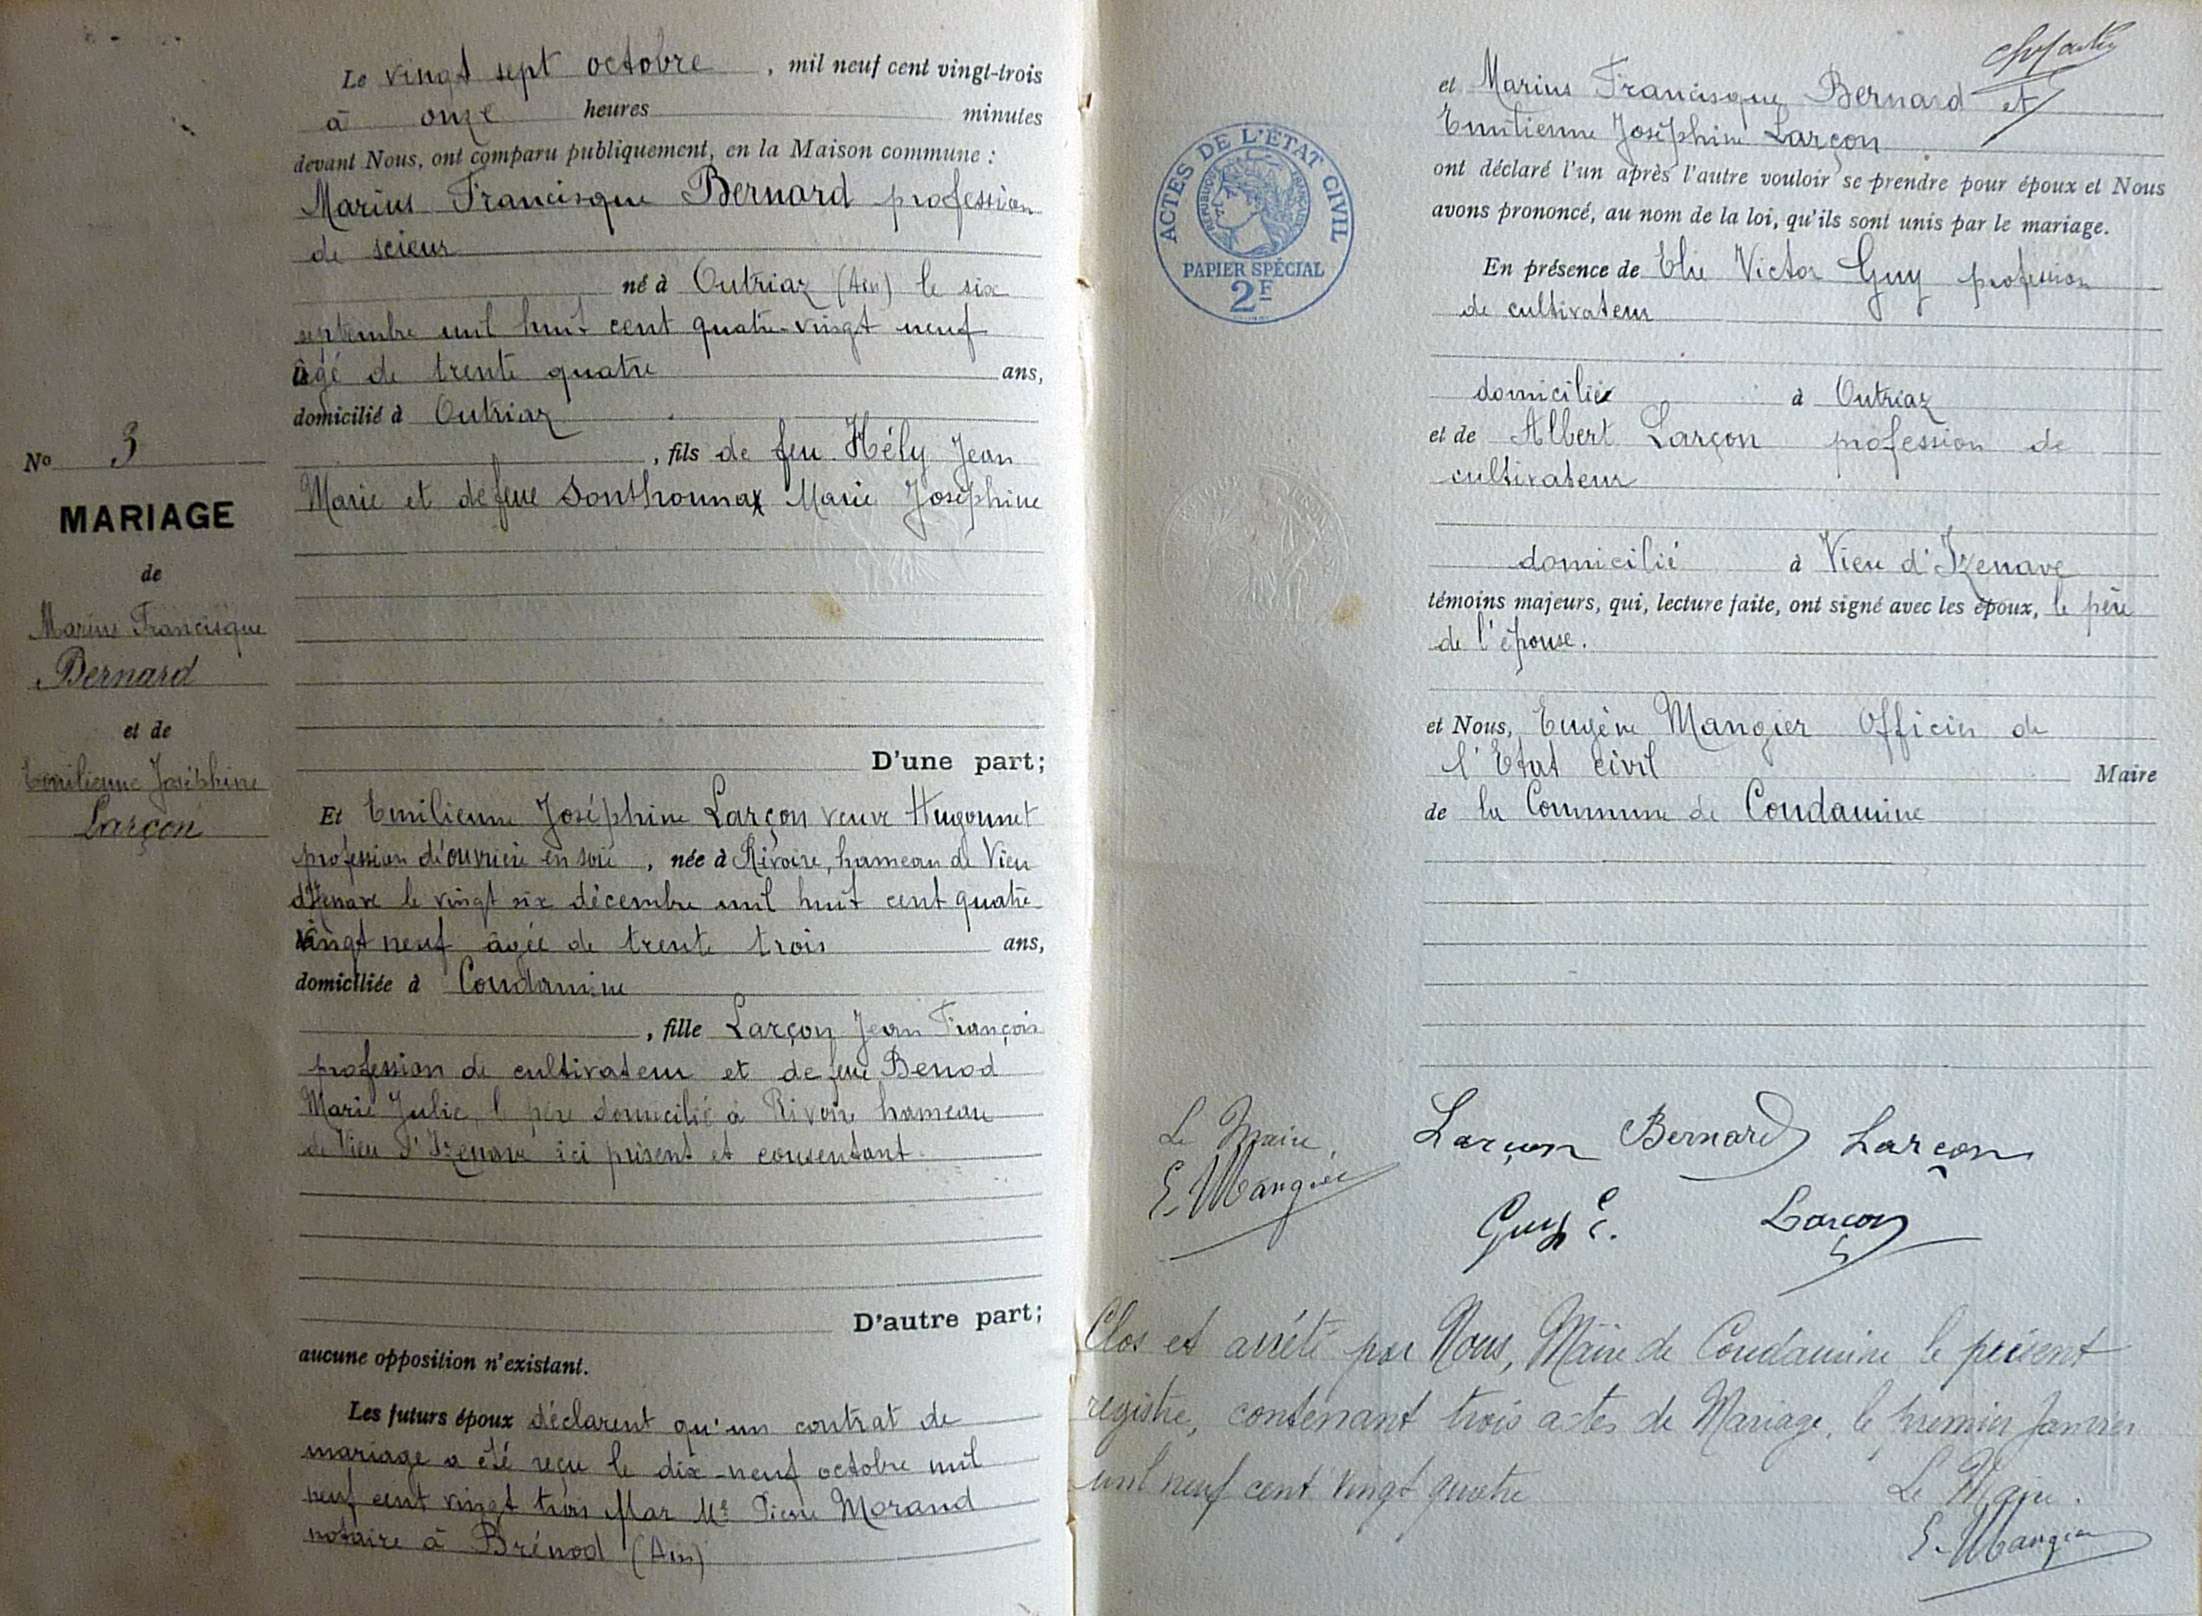 N° 3
MARIAGE
de
Marius Francisque
Bernard
et de
Emilienne Joséphine
Larçon
Le vingt sept octobre, mil neuf cent vingt-trois
à onze heures minutes
devant Nous, ont comparu publiquement, en la Maison commune :
Marius Francisque Bernard profession
de scieur
né à Outriaz (Ain) le six
septembre mil huit cent quatre-vingt neuf
âgé de trente quatre ans,
domicilié à Outriaz
, fils de feu Hély Jean
Marie et de feue Sonthonnax Marie Joséphine
D'une part;
Et Emilienne Joséphine Larçon veuve Hugonnet
profession d'ouvrière en soie, née à Rivoire, hameau de Vieu
d'Izenave le vingt six décembre mil huit cent quatre
vingt neuf âgée de trente trois ans,
domiciliée à Condamine
, fille Larçon Jean François
profession de cultivateur et de feue Benod
Marie Julie, le père domicilié à Rivoire hameau
de Vieu d'Izenave ici présent et consentant.
D'autre part;
aucune opposition n'existant.
Les futurs époux déclarent qu'un contrat de
mariage a été reçu le dix-neuf octobre mil
neuf cent vingt trois par Me Pierre Morand
notaire à Brénod (Ain)
et Marius Francisque Bernard et
Emilienne Joséphine Larçon
ont déclaré l'un après l'autre vouloir se prendre pour époux et Nous
avons prononcé, au nom de la loi, qu'ils sont unis par le mariage.
ACTES DE L'ÉTAT CIVIL
RÉPUBLIQUE FRANÇAISE
PAPIER SPÉCIAL
2F
En présence de Elie Victor Guy profession
de cultivateur
domicilié à Outriaz
et de Albert Larçon profession de
cultivateur
domicilié à Vieu d'Izenave
témoins majeurs, qui, lecture faite, ont signé avec les époux, le père
de l'épouse.
et Nous, Eugène Mangier Officier de
l'Etat civil Maire
de la Commune de Condamine
Le Maire, Larçon Bernard Larçon
E. Mangier Guy E. Larçon
Clos et arrêté par Nous, Maire de Condamine le présent
registre, contenant trois actes de Mariage, le premier Janvier
mil neuf cent vingt quatre
Le Maire.
E. Mangier